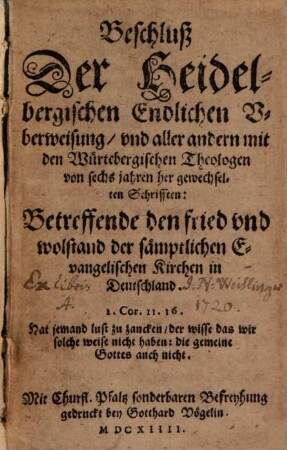 Beschluß
Der Heidel-
bergischen Endlichen V-
berweisung/ vnd aller andern mit
den Würtebergischen Theologen
von sechs jahren her gewechsel-
ten Schrifften:
Betreffende den fried vnd
wolstand der sämptlichen E-
vangelischen Kirchen in
Deutschland.
Ex libris J. N. Weislinger
A. 1720.
1. Cor. 11. 16.
Hat jemand lust zu zancken/ der wisse das wir
solche weise nicht haben: die gemeine
Gottes auch nicht.
Mit Churfl. Pfaltz sonderbaren Befreyhung
gedruckt bey Gotthard Vögelin.
MDCXIIII.